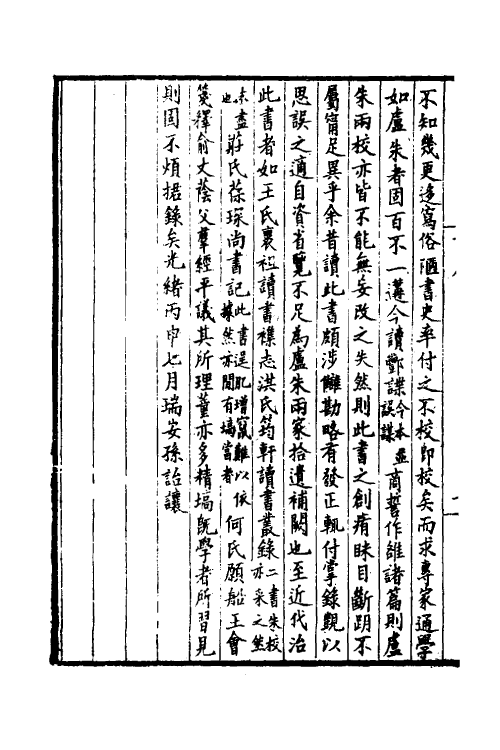 不知幾更迻寫俗陋書史率付之不校即校矣而求專家通學
如盧朱者固百不一遘今讀酆謀今本並誤謀商誓作雒諸篇則盧
朱兩校亦皆不能無妄改之失然則此書之創痏眯目斷跀不
屬甯足異乎余昔讀此書頗涉讎勘略有發正輒付掌錄覬以
思誤之適自資省覽不足為盧朱兩家拾遺補闕也至近代治
此書者如王氏襄祖讀書襍志洪氏筠軒讀書叢錄二書朱校亦采之然
未盡也莊氏葆琛尚書記此書逞肊增竄難以依據然亦閒有塙當者何氏願船王會
箋釋俞丈蔭父羣經平議其所理董亦多精塙既學者所習見
則固不煩捃錄矣光緒丙申七月瑞安孫詒讓